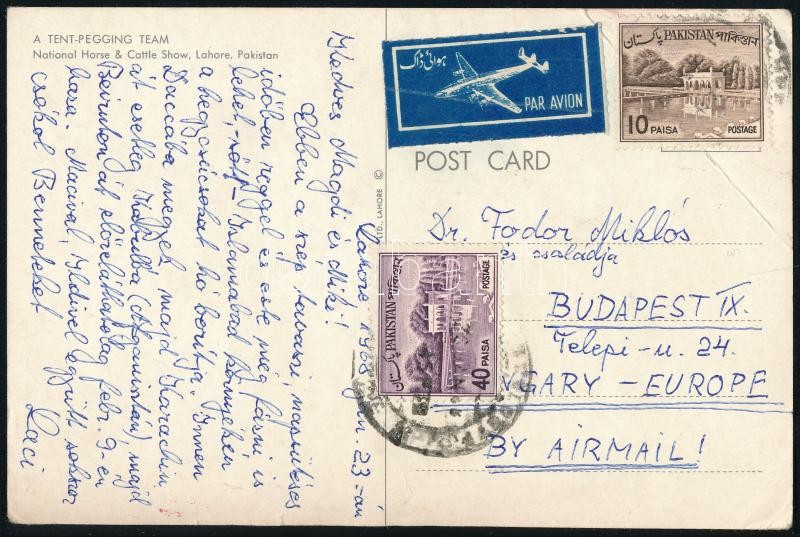 A TENT-PEGGING TEAM
National Horse & Cattle Show, Lahore, Pakistan
Lahore 1968 jan. 23-án
Kedves Magdi és Miki!
Ebben a szép tavaszi, napsütéses
időben reggel és este még fázni is
lehet, sőt Islamabad környékén
a hegycsúcsokat hó borítja. Innen
Daccába megyek, majd Karachin
át esetleg Kabulba (Afganistán) majd
Beiruton át előreláthatólag febr. 9-én
haza. Macival, Ildivel együtt sokszor
csókol Benneteket
Laci
LTD., LAHORE ©
ہوائی ڈاک
PAR AVION
POST CARD
پاکستان PAKISTAN পাকিস্তান
10 PAISA
POSTAGE
پاکستان PAKISTAN পাকিস্তান
40 PAISA
POSTAGE
Dr. Fodor Miklós
és családja
BUDAPEST IX.
Telepi-u. 24.
NGARY - EUROPE
BY AIRMAIL!